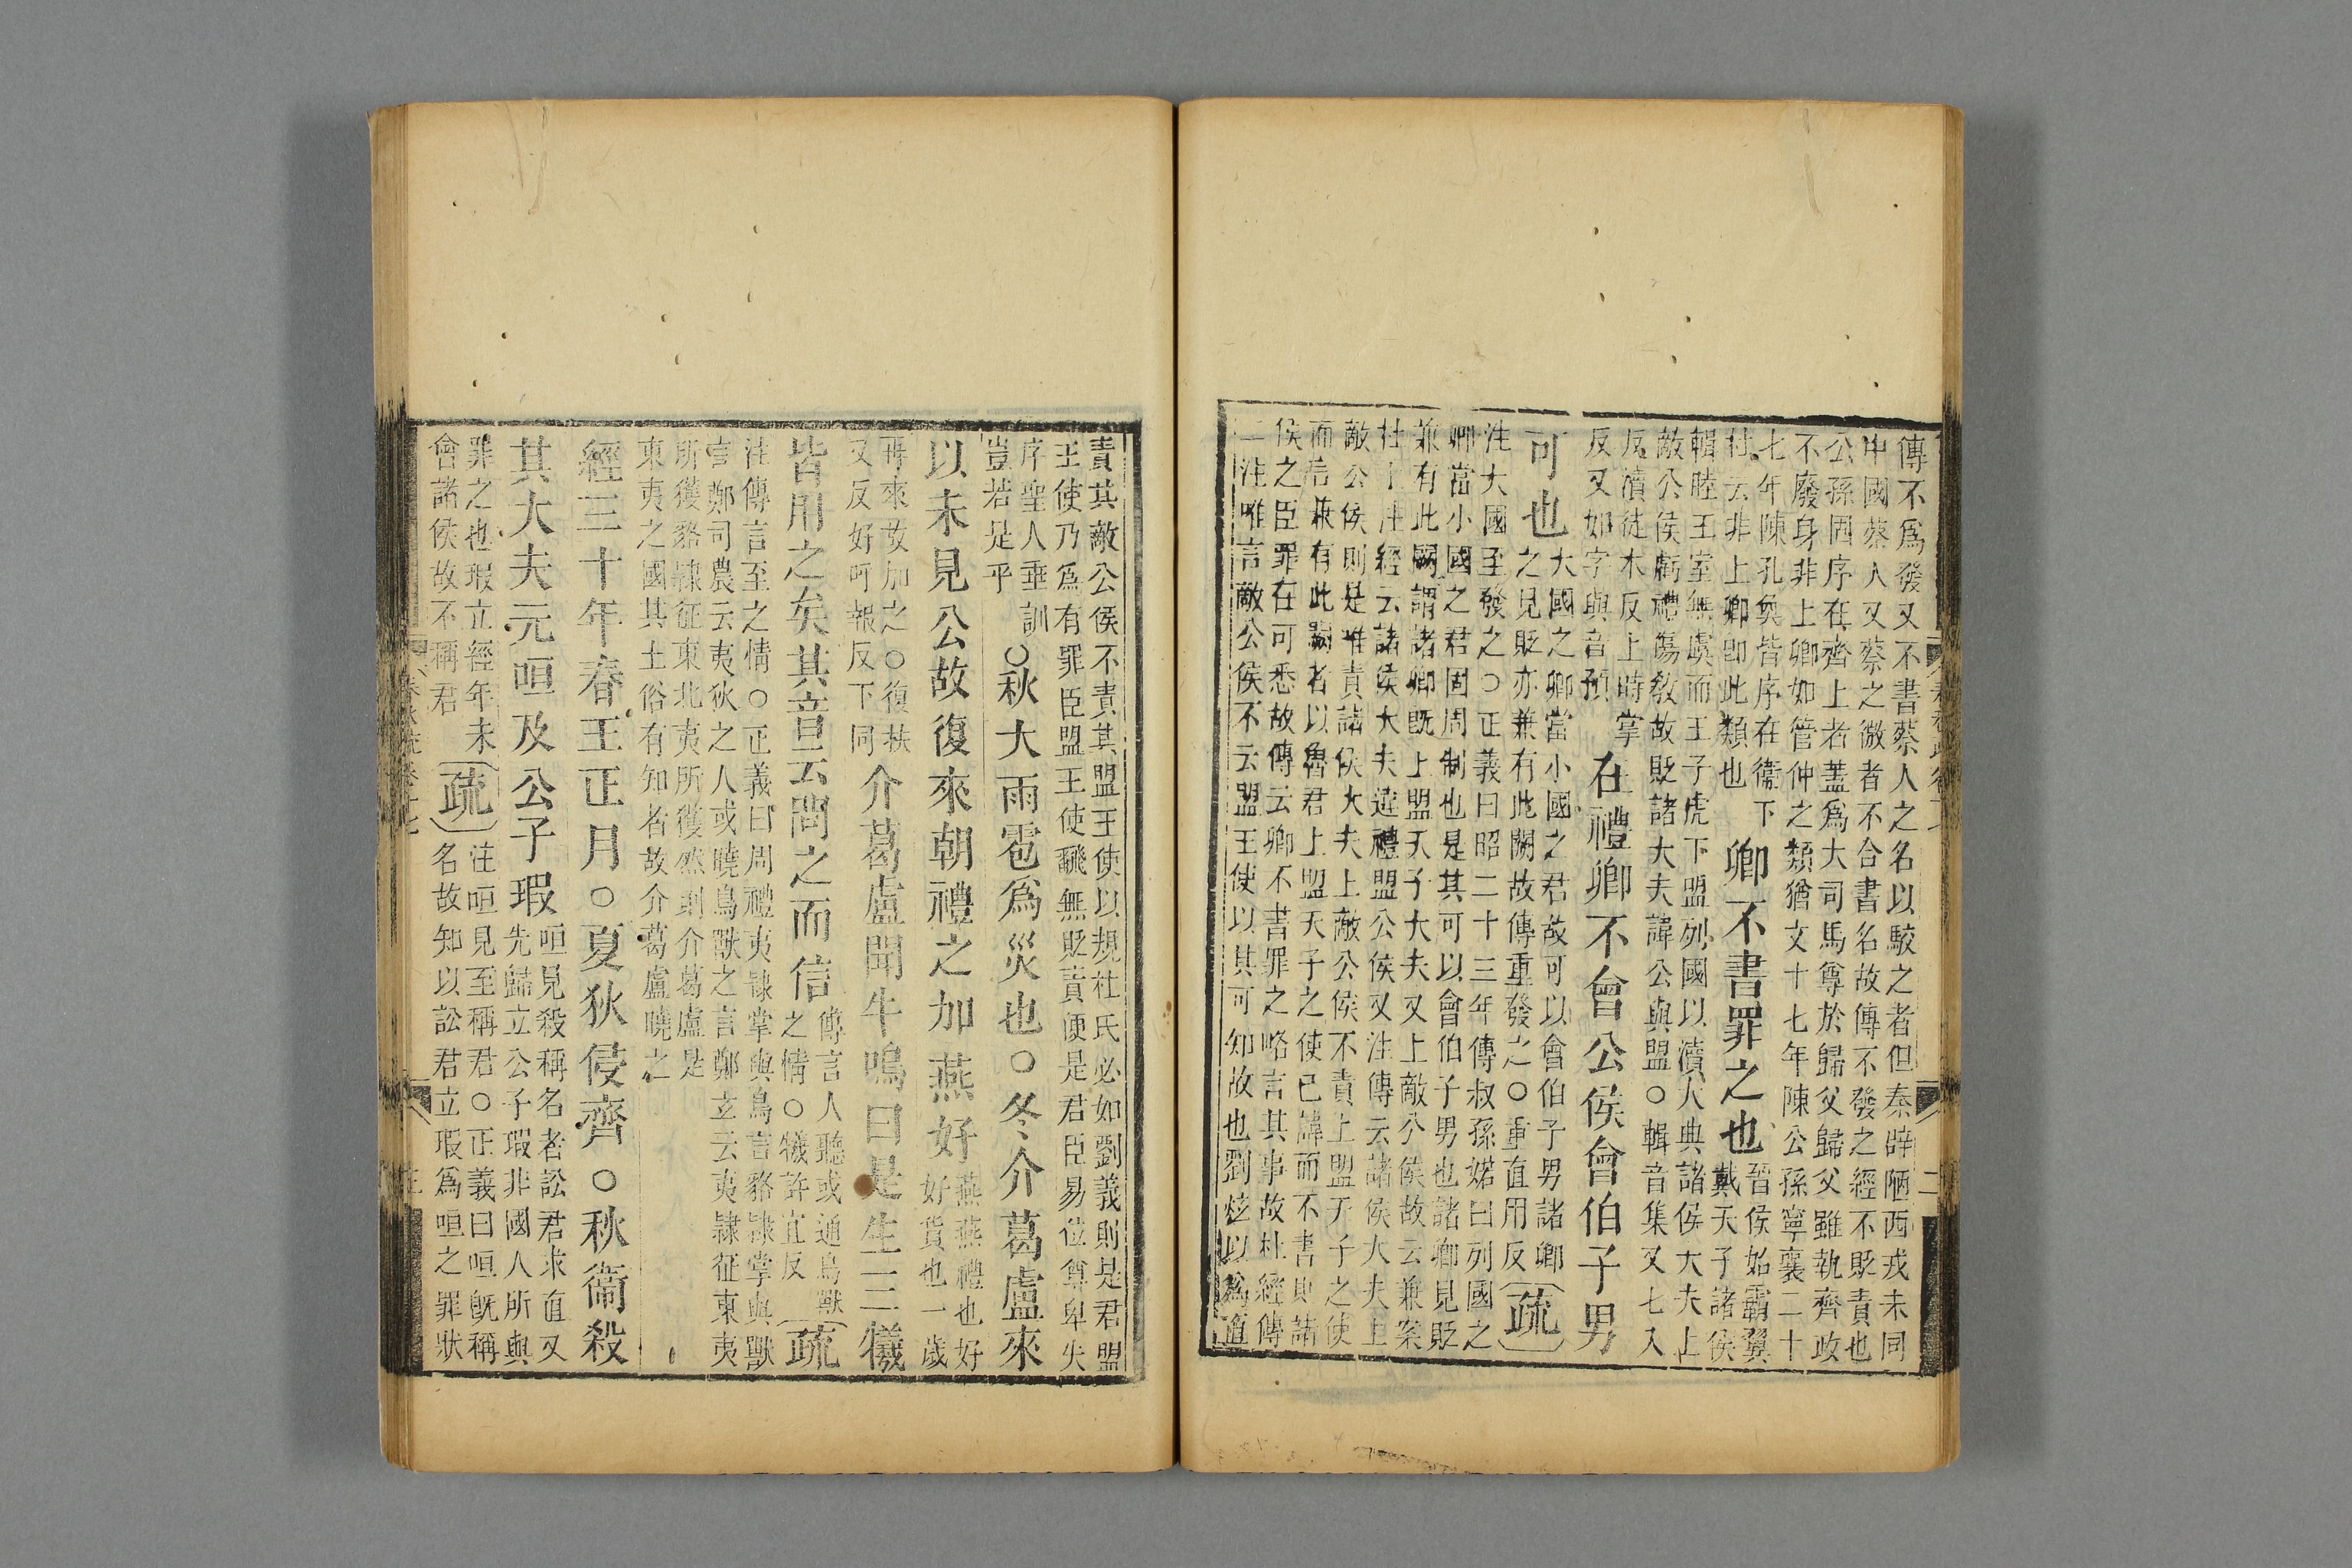 傳不爲發又不書蔡人之名以駮之者但秦辟陋西戎未同
中國蔡人又蔡之微者不合書名故傳不發之經不貶責也
公孫固序在齊上者蓋爲大司馬尊於歸父歸父雖執齊政
不廢身非上卿如管仲之類猶文十七年陳公孫寧襄二十
七年陳孔奐皆序在衞下
杜云非上卿卽此類也
卿不書罪之也
晉侯始霸翼
戴天子諸侯
輯睦王室無虞而王子虎下盟列國以瀆大典諸侯大夫上
敵公侯虧禮傷敎故貶諸大夫諱公與盟○輯音集又七入
反瀆徒木反上時掌
反又如字與音預
在禮卿不會公侯會伯子男
可也
大國之卿當小國之君故可以會伯子男諸卿
之見貶亦兼有此闕故傳重發之○重直用反
疏
注大國至發之○正義曰昭二十三年傳叔孫婼曰列國之
卿當小國之君固周制也是其可以會伯子男也諸卿見貶
兼有此闕謂諸卿旣上盟天子大夫又上敵公侯故云兼案
杜上注經云諸侯大夫違禮盟公侯又注傳云諸侯大夫上
敵公侯則是唯責諸侯大夫上敵公侯不責上盟天子之使
而言兼有此闕者以魯君上盟天子之使已諱而不書則諸
侯之臣罪在可悉故傳云卿不書罪之略言其事故杜經傳
二注唯言敵公侯不云盟王使以其可知故也劉炫以爲直
責其敵公侯不責其盟王使以規杜氏必如劉義則是君盟
王使乃爲有罪臣盟王使飜無貶責便是君臣易位尊卑失
序聖人垂訓
豈若是乎
○秋大雨雹爲災也○冬介葛盧來
以未見公故復來朝禮之加燕好
燕燕禮也好
好貨也一歲
再來故加之○復扶
又反好呼報反下同
介葛盧聞牛鳴曰是生三犧
皆用之矣其音云問之而信
傳言人聽或通鳥獸
之情○犧許宜反
疏
注傳言至之情○正義曰周禮夷隷掌與鳥言貉隷掌與獸
言鄭司農云夷狄之人或曉鳥獸之言鄭玄云夷隷征東夷
所獲貉隷征東北夷所獲然則介葛盧是
東夷之國其土俗有知者故介葛盧曉之
經三十年春王正月○夏狄侵齊○秋衞殺
其大夫元咺及公子瑕
咺見殺稱名者訟君求直又
先歸立公子瑕非國人所與
罪之也瑕立經年未
會諸侯故不稱君
疏
注咺見至稱君○正義曰咺旣稱
名故知以訟君立瑕爲咺之罪狀